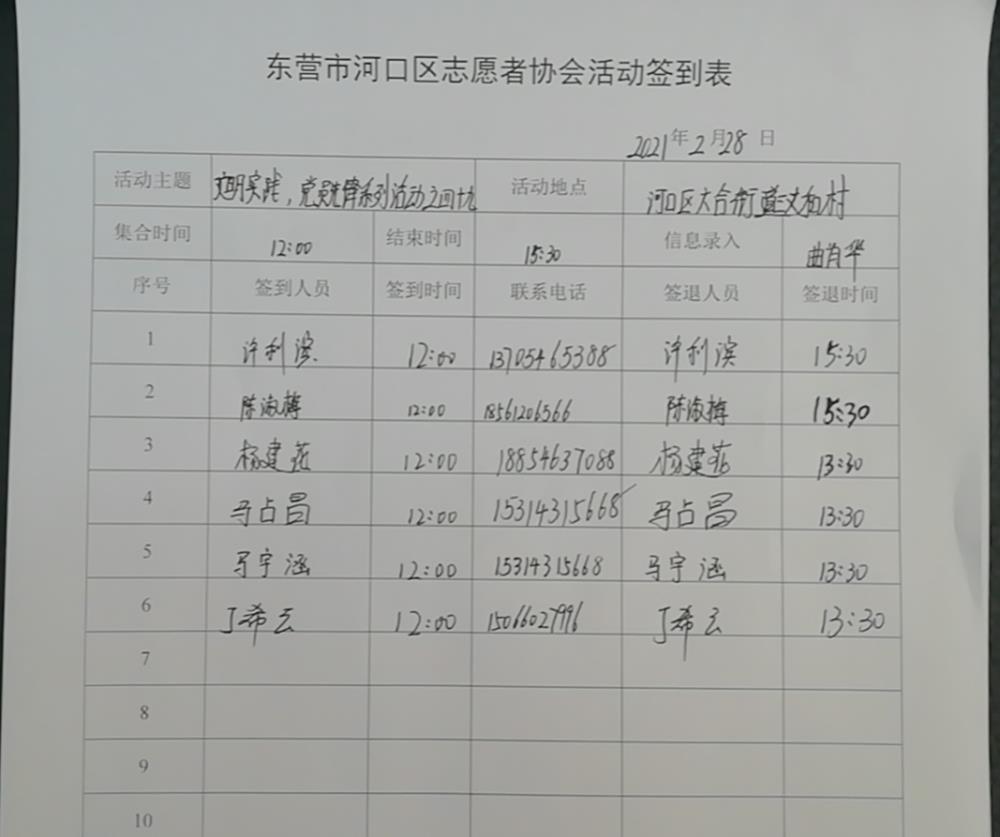 东营市河口区志愿者协会活动签到表
2021年2月28日
活动主题 文明实践，党员先锋系列活动之四十九 活动地点 河口区六合街道
集合时间 12:00 结束时间 15:30 信息录入 曲肖华
序号 签到人员 签到时间 联系电话 签退人员 签退时间
1 许利滨 12:00 13705465388 许利滨 15:30
2 陈淑梅 12:00 18561206566 陈淑梅 15:30
3 杨建花 12:00 18854637088 杨建花 13:30
4 马占昌 12:00 15314315668 马占昌 13:30
5 马宇涵 12:00 15314315668 马宇涵 13:30
6 丁希云 12:00 15066027996 丁希云 13:30
7
8
9
10